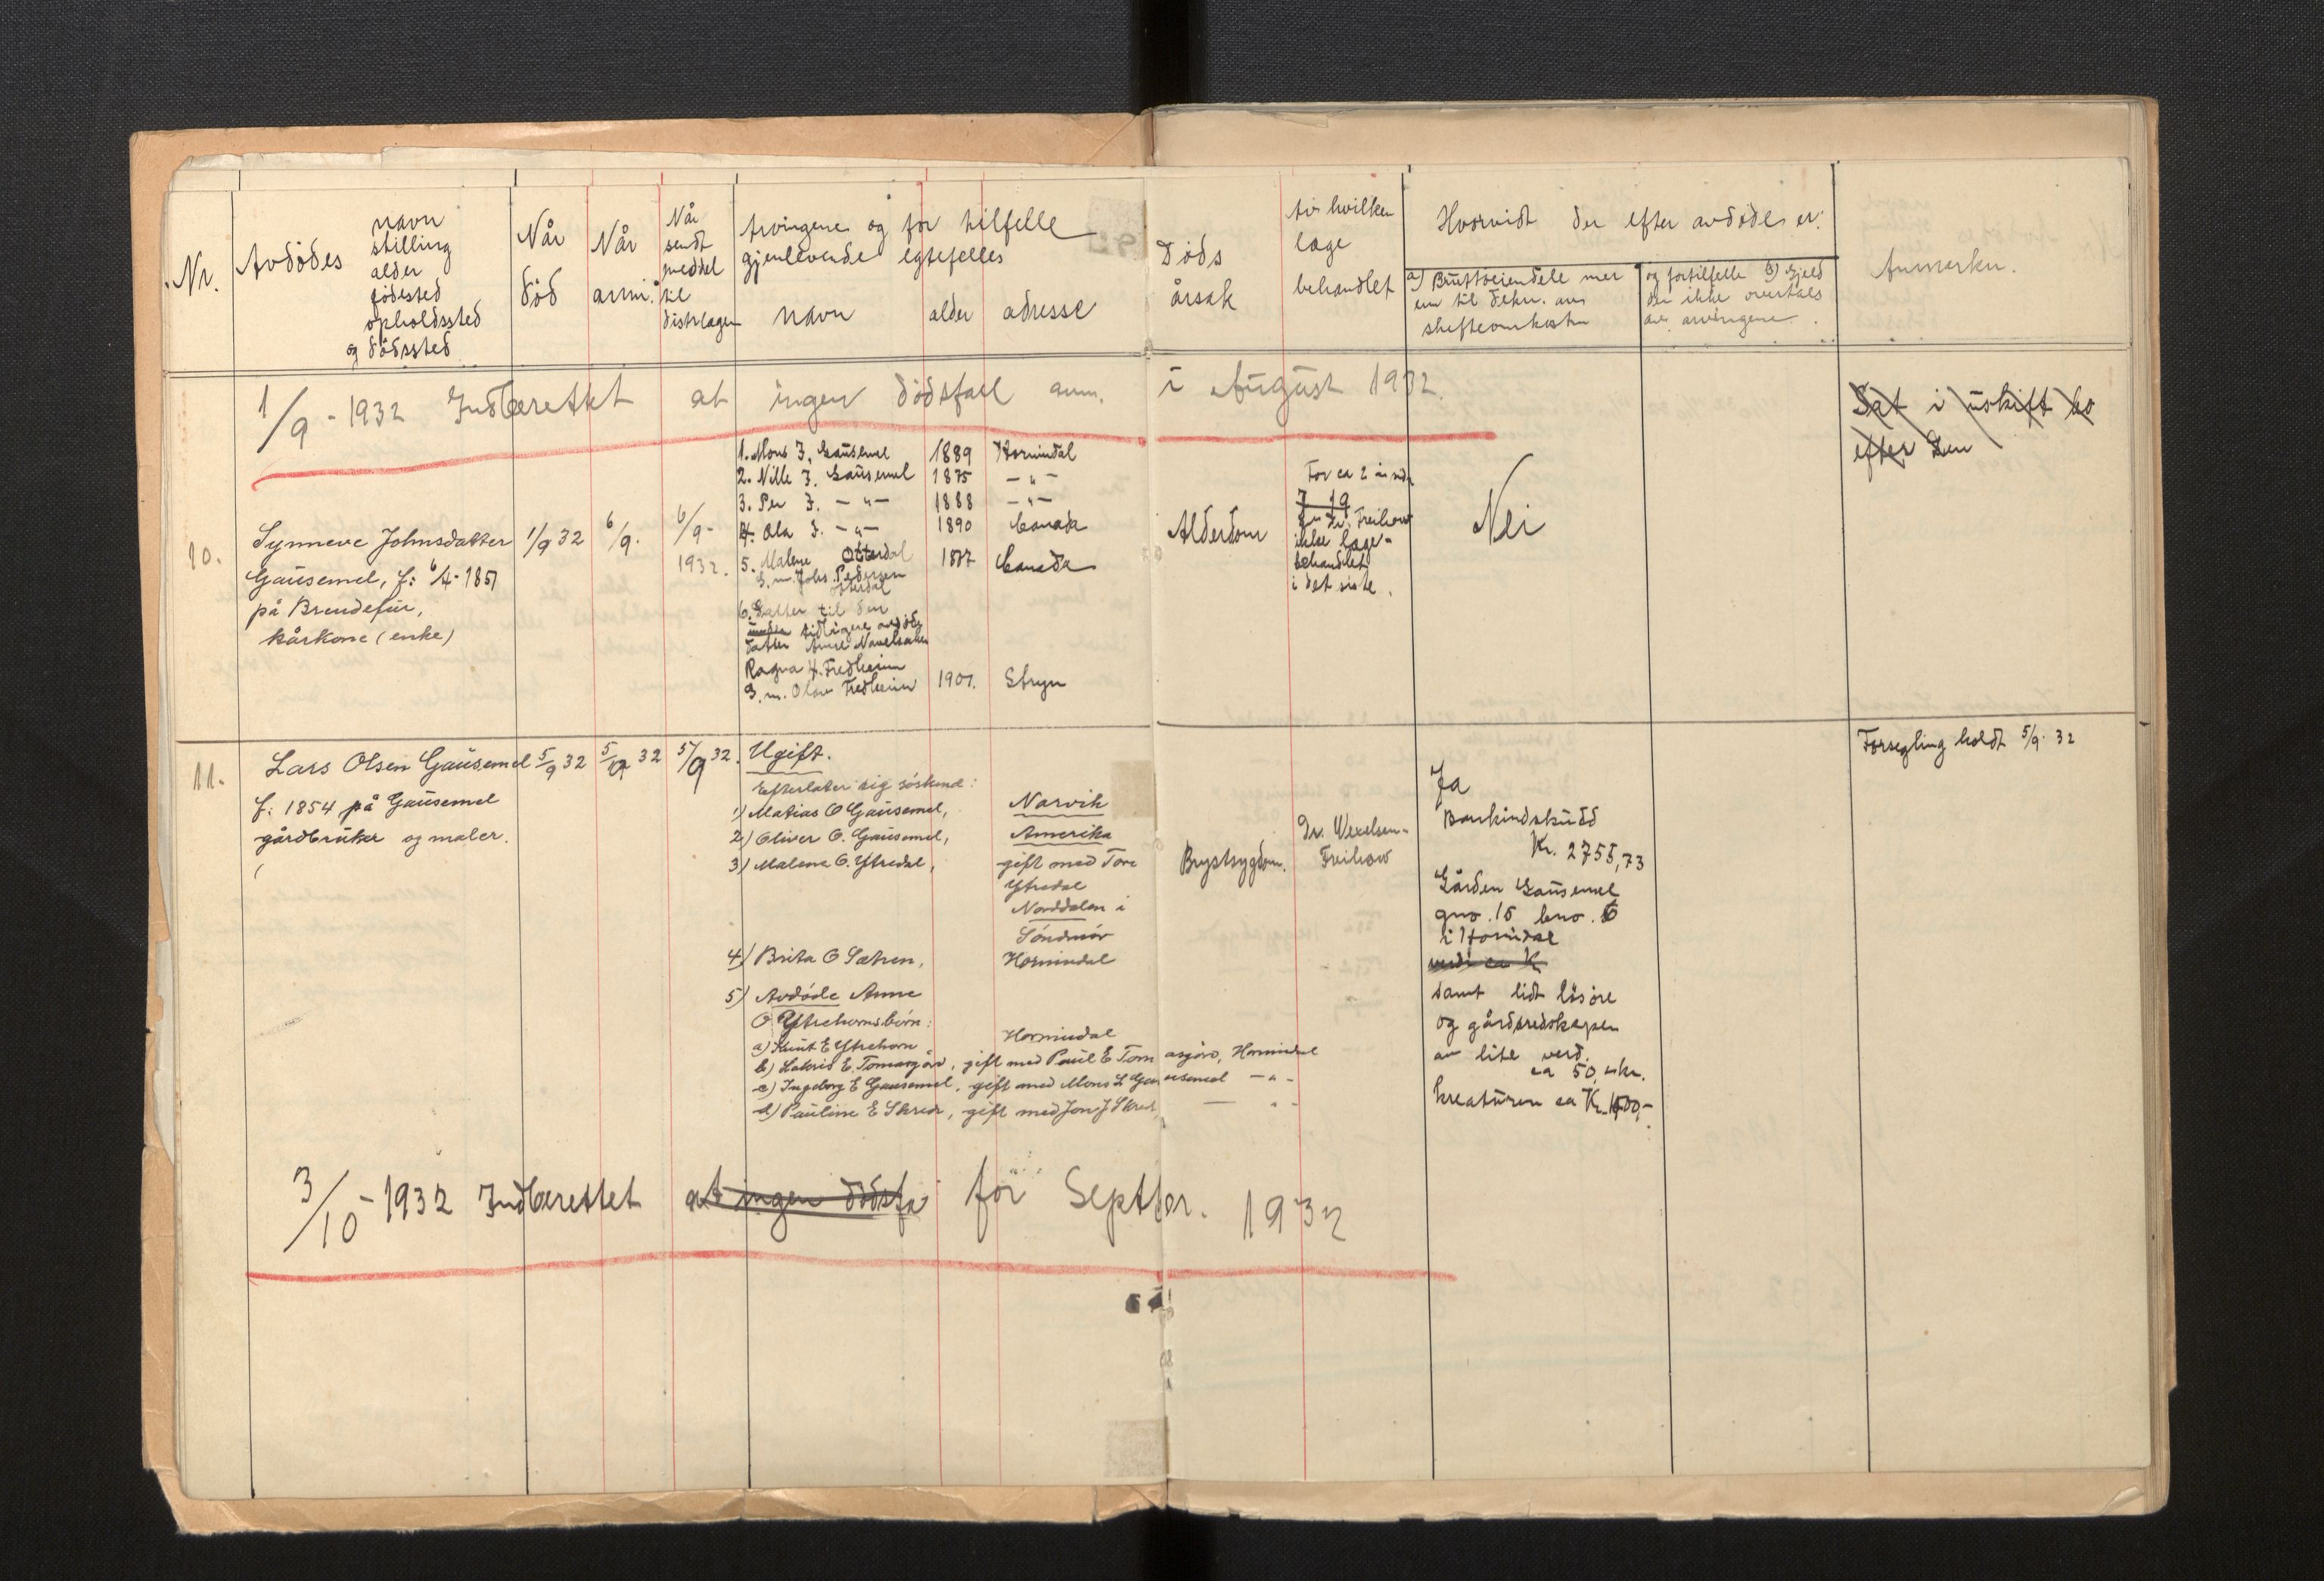 Nr.
Avdödes
navn
stilling
alder
födested
opholdssted
og dödssted
Når
död
Når
anm.
Når
sendt
meddel
til
distr.lagen
Arvingene og for tilfelle
gjenlevende egtefelles
navn
alder
adresse
Döds
årsak
Av hvilken
læge
behandlet
Hvorvidt der efter avdöde er:
a) Bruttoeiendele mer
enn til dekn. av
skifteomkostn
og fortilfelle b) Gjeld
der ikke overtaes
av arvingene.
Anmerkn.
1/9 - 1932 Indberettet at ingen dödsfall anm. i August 1932.
Sat i uskift bo
efter den
10.
Synneve Johnsdatter
Gausemel, f: 6/4-1851
på Brendefur,
kårkone (enke)
1/9 32
6/9.
6/9-
1932.
1. Mons J. Gausemel 1889 Hornindal
2. Nille J. Gausemel 1875 - " -
3. Per J. - " - 1888 - " -
4. Ola J. - " - 1890 Canada
5. Malene Otterdal 1887 Canada
g.m. Johs. Pedersen
Otterdal
6. Datter til den
tidligere avdöde
datter Anne Navelsaker
Ragna H. Fredheim
g.m. Olav Fredheim 1901. Stryn
Alderdom
For ca 2 år sid.
Dr. Freihow
ikke læge-
behandlet
i det siste.
Nei
11.
Lars Olsen Gausemel
f: 1854 på Gausemel
gårdbruker og maler.
5/9 32
5/9 32
5/9 32.
Ugift.
Efterlater sig söskend:
1) Matias O Gausemel, Narvik
2) Oliver O. Gausemel, Amerika
3) Malene O. Ytredal, gift med Tore
Ytredal
Norddalen i
Söndmör
4) Brita O Sætren, Hornindal
5) Avdöde Anne
O Ytrehornsbörn:
a) Knut E Ytrehorn Hornindal
b) Lakris E. Tomasgård, gift med Paul E Tomasgård, Hornindal
c) Ingeborg E Gausemel, gift med Mons L Gausemel - " -
d) Pauline E Skrede, gift med Jon J Skrede, - " -
Brystsygdom.
Dr. Wexelsen-
Freihow
Ja
Bankindskudd
Kr. 2755,73
Gården Gausemel
gno. 15 bno. 5
i Hornindal
verdi ca K
samt lidt lösöre
og gårdsredskapen
av lite verd.
ca 50,- kr.
kreaturen ca Kr. 400,-
Forsegling holdt 5/9. 32
3/10 - 1932 Indberettet at ingen dödsfa for Septbr. 1932